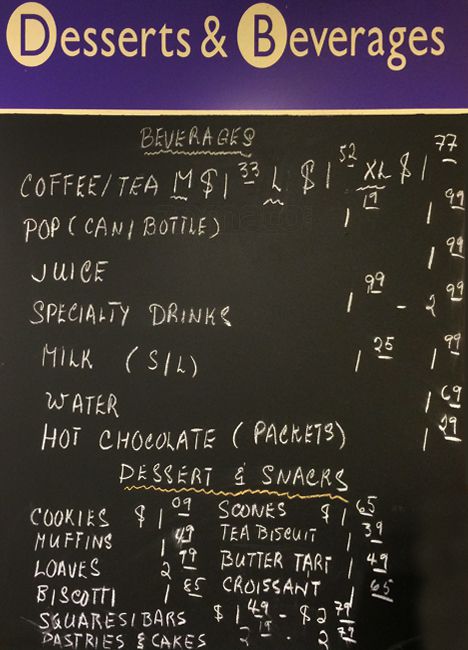 Desserts & Beverages
BEVERAGES
COFFEE/TEA M $1 33 L $1 52 XL $1 77
POP (CAN/BOTTLE) 1 19 1 99
JUICE 1 99
SPECIALTY DRINKS 1 99 - 2 99
MILK (S/L) 1 25 1 99
WATER 1 69
HOT CHOCOLATE (PACKETS) 1 29
DESSERT & SNACKS
COOKIES $1 09 SCONES $1 65
MUFFINS 1 49 TEA BISCUIT 1 39
LOAVES 2 BUTTER TART 1 49
BISCOTTI 1 85 CROISSANT 1 65
SQUARES/BARS $1 49 - $2 79
PASTRIES & CAKES 2 19 - 2 79